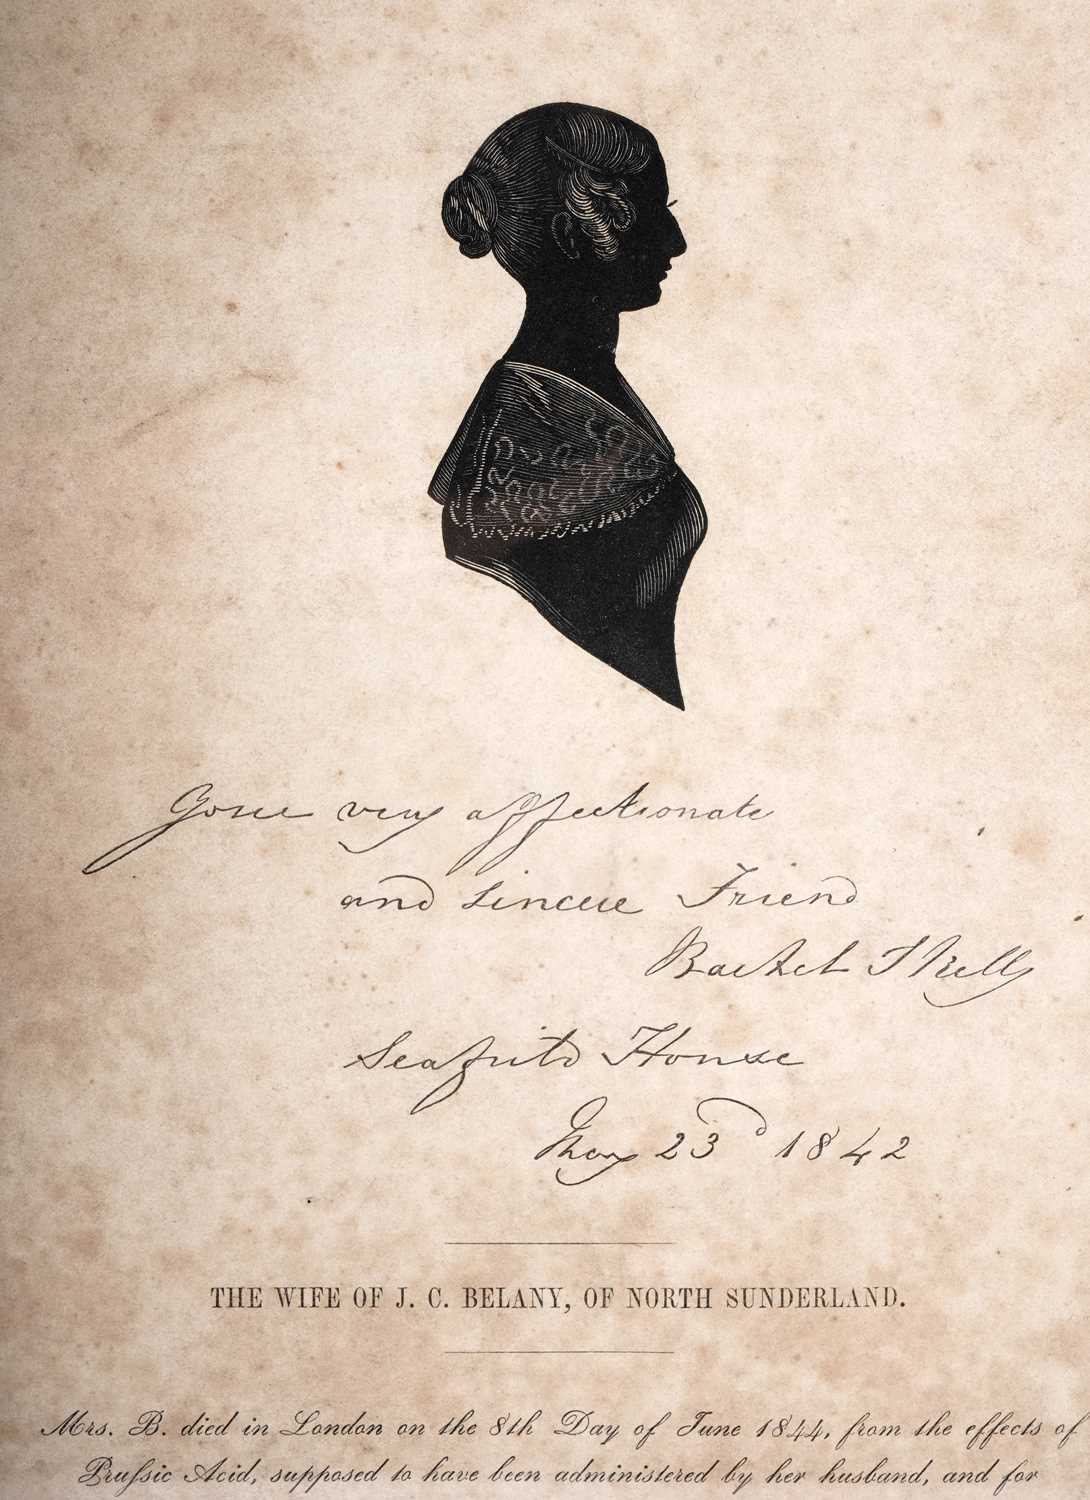 Your very affectionate
and sincere Friend
Rachel Skelly
Seafield House
May 23d 1842
THE WIFE OF J. C. BELANY, OF NORTH SUNDERLAND.
Mrs. B. died in London on the 8th Day of June 1844, from the effects of
Prussic Acid, supposed to have been administered by her husband, and for